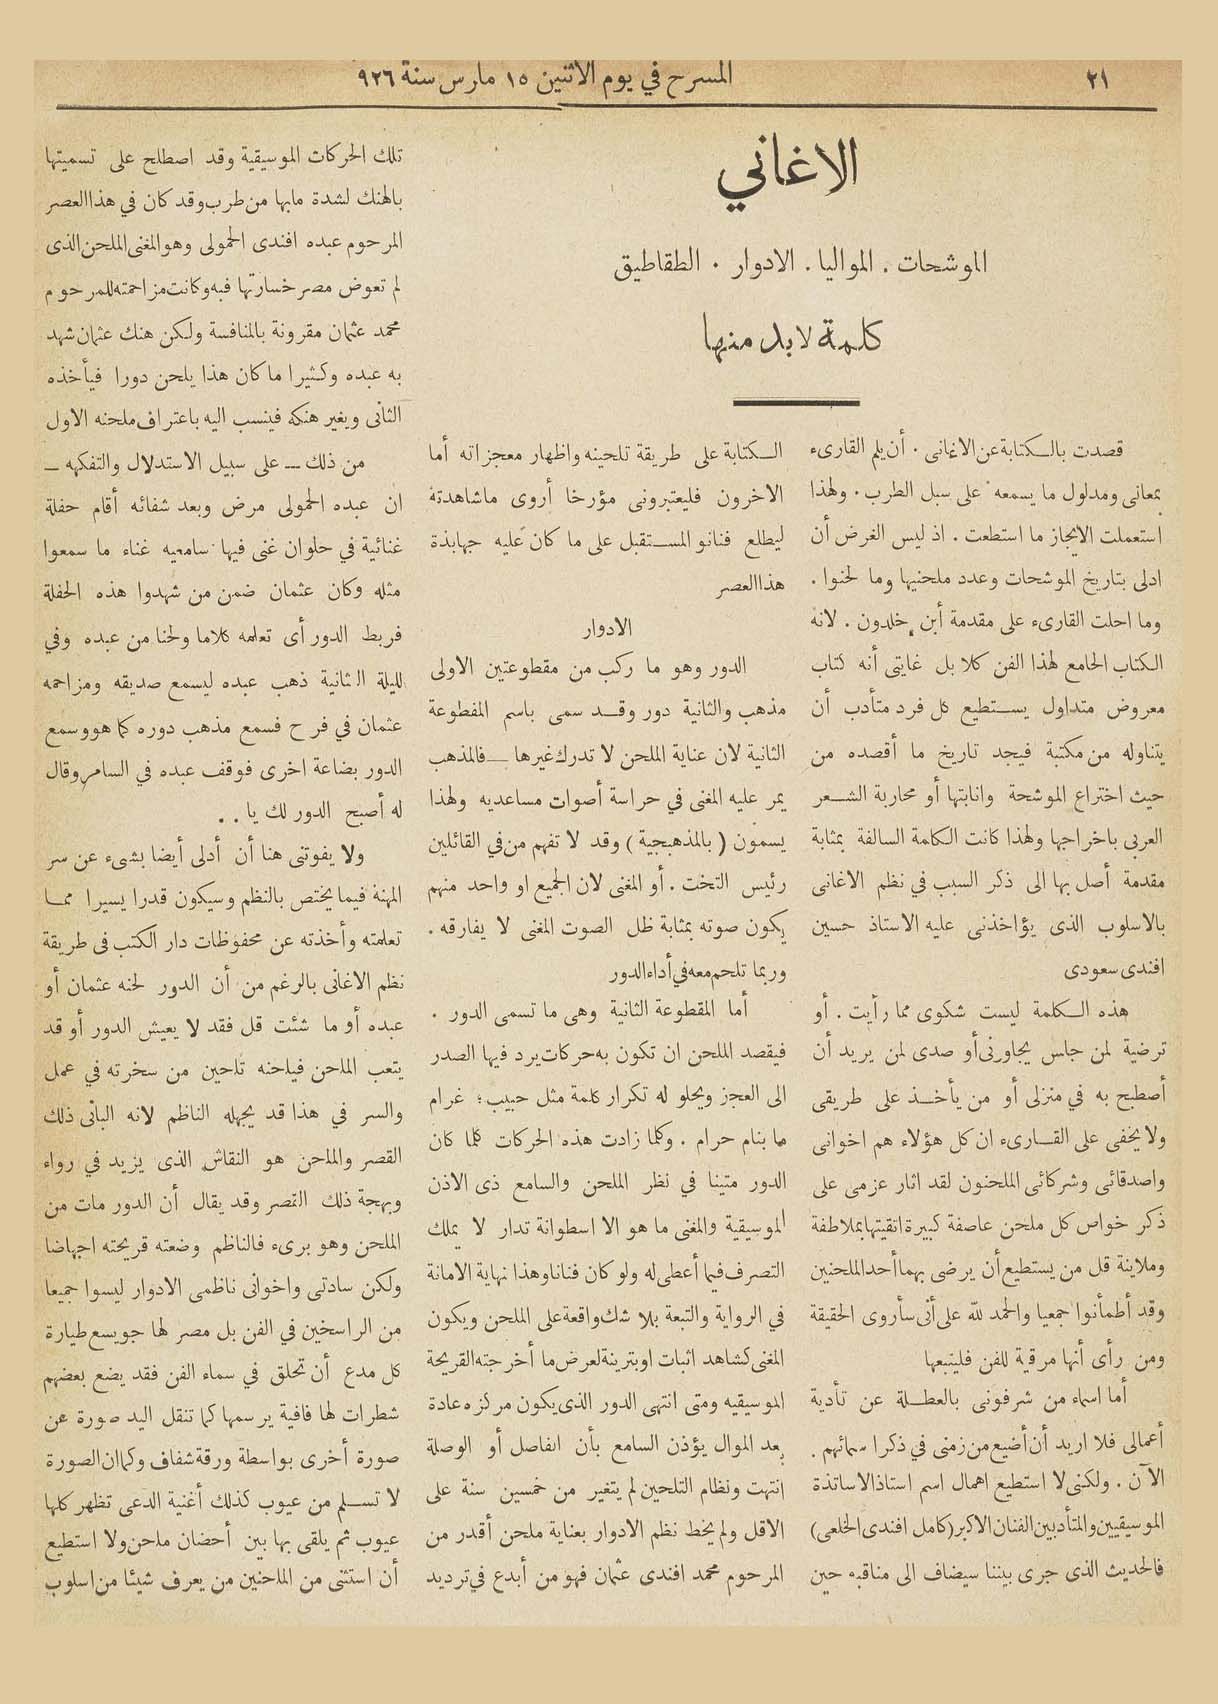 ٢١
المسرح في يوم الاثنين ١٥ مارس سنة ٩٢٦
الاغاني
الموشحات . المواليا . الادوار . الطقاطيق
كلمة لا بد منها
قصدت بالكتابة عن الاغانى . أن يلم القارىء
بمعانى ومدلول ما يسمعه على سبل الطرب . ولهذا
استعملت الايجاز ما استطعت . اذ ليس الغرض أن
ادلى بتاريخ الموشحات وعدد ملحنيها وما لحنوا .
وما احلت القارىء على مقدمة أبن خلدون . لانه
الكتاب الجامع لهذا الفن كلا بل غايتى أنه كتاب
معروض متداول يستطيع كل فرد متأدب أن
يتناوله من مكتبة فيجد تاريخ ما أقصده من
حيث اختراع الموشحة وانابتها أو محاربة الشعر
العربى باخراجها ولهذا كانت الكلمة السالفة بمثابة
مقدمة أصل بها الى ذكر السبب في نظم الاغانى
بالاسلوب الذى يؤاخذنى عليه الاستاذ حسين
افندى سعودى
هذه الكلمة ليست شكوى مما رأيت . أو
ترضية لمن جلس بجاورنى أو صدى لمن يريد أن
أصطبح به في منزلى أو من يأخذ على طريقى
ولا يخفى على القارىء ان كل هؤلاء هم اخوانى
واصدقائى وشركائى الملحنون لقد اثار عزمى على
ذكر خواص كل ملحن عاصفة كبيرة اتقيتها بملاطفة
وملاينة قل من يستطيع أن يرضى بهما أحد الملحنين
وقد أطمأنوا جمعيا والحمد لله على أنى سأروى الحقيقة
ومن رأى أنها مرقية للفن فليتبعها
أما اسماء من شرفونى بالعطلة عن تأدية
أعمالى فلا اريد أن أضيع من زمنى في ذكرا سمائهم .
الآن . ولكنى لا استطيع اهمال اسم استاذ الاساتذة
الموسيقيين والمتأدبين الفنان الاكبر (كامل افندى الخلعى)
فالحديث الذى جرى بيننا سيضاف الى مناقبه حين
الكتابة على طريقة تلحينه واظهار معجزاته أما
الاخرون فليعتبرونى مؤرخا أروى ماشاهدتة
ليطلع فنانو المستقبل على ما كان عليه جهابذة
هذا العصر
الادوار
الدور وهو ما ركب من مقطوعتين الاولى
مذهب والثانية دور وقد سمى باسم المقطوعة
الثانية لان عناية الملحن لا تدرك غيرها — فالمذهب
يمر عليه المغنى في حراسة أصوات مساعديه ولهذا
يسمون ( بالمذهبجية ) وقد لا تفهم من في القائلين
رئيس التخت . أو المغنى لان الجميع او واحد منهم
يكون صوته بمثابة ظل الصوت المغنى لا يفارقه .
وربما تلحم معه في أداء الدور
أما المقطوعة الثانية وهى ما تسمى الدور .
فيقصد الملحن ان تكون به حركات يرد فيها الصدر
الى العجز ويحلو له تكرار كلمة مثل حبيب ؛ غرام
ما بنام حرام . وكلما زادت هذه الحركات كلما كان
الدور متينا في نظر الملحن والسامع ذى الاذن
الموسيقية والمغنى ما هو الا اسطوانة تدار لا يملك
التصرف فيما أعطى له ولو كان فنانا وهذا نهاية الامانة
في الرواية والتبعة بلا شك واقعة على الملحن ويكون
المغنى كشاهد اثبات او بترينة لعرض ما أخرجته القريحة
الموسيقيه ومتى انتهى الدور الذى يكون مركزه عادة
بعد الموال يؤذن السامع بأن الفاصل أو الوصلة
انتهت ونظام التلحين لم يتغير من خمسين سنة على
الاقل ولم يخط نظم الادوار بعناية ملحن أقدر من
المرحوم محمد افندى عثمان فهو من أبدع في ترديد
تلك الحركات الموسيقية وقد اصطلح على تسميتها
بالهنك لشدة مابها من طرب وقد كان في هذا العصر
المرحوم عبده افندى الحمولى وهو المغنى الملحن الذى
لم تعوض مصر خسارتها فيه وكانت مزاحمته للمرحوم
محمد عثمان مقرونة بالمنافسة ولكن هنك عثمان شهد
به عبده وكثيرا ما كان هذا يلحن دورا فيأخذه
الثانى ويغير هنكه فينسب اليه باعتراف ملحنه الاول
من ذلك — على سبيل الاستدلال والتفكهه —
ان عبده الحمولى مرض وبعد شفائه أقام حفلة
غنائية في حلوان غنى فيها سامعيه غناء ما سمعوا
مثله وكان عثمان ضمن من شهدوا هذه الحفلة
فربط الدور أى تعلمه كلاما ولحنا من عبده وفي
لليلة الثانية ذهب عبده ليسمع صديقه ومزاحمه
عثمان في فرح فسمع مذهب دوره كما هو وسمع
الدور بضاعة اخرى فوقف عبده في السامر وقال
له أصبح الدور لك يا . .
ولا يفوتنى هنا أن أدلى أيضا بشىء عن سر
المهنة فيما يختص بالنظم وسيكون قدرا يسيرا مما
تعلمته وأخذته عن محفوظات دار الكتب فى طريقة
نظم الاغانى بالرغم من أن الدور لحنه عثمان أو
عبده أو ما شئت قل فقد لا يعيش الدور أو قد
يتعب الملحن فيلحنه تلحين من سخرته في عمل
والسر في هذا قد يجهله الناظم لانه البانى ذلك
القصر والملحن هو النقاش الذى يزيد في رواء
وبهجة ذلك القصر وقد يقال أن الدور مات من
الملحن وهو برىء فالناظم وضعته قريحته اجهاضا
ولكن سادتى واخوانى ناظمى الادوار ليسوا جميعا
من الراسخين في الفن بل مصر لها جو يسع طيارة
كل مدع أن تحلق في سماء الفن فقد يضع بعضهم
شطرات لها قافية يرسمها كما تنقل اليد صورة عن
صورة أخرى بواسطة ورقة شفاف وكما ان الصورة
لا تسلم من عيوب كذلك أغنية الدعى تظهر كلها
عيوب ثم يلقى بها بين أحضان ملحن ولا استطيع
أن استثنى من الملحنين من يعرف شيئا من اسلوب